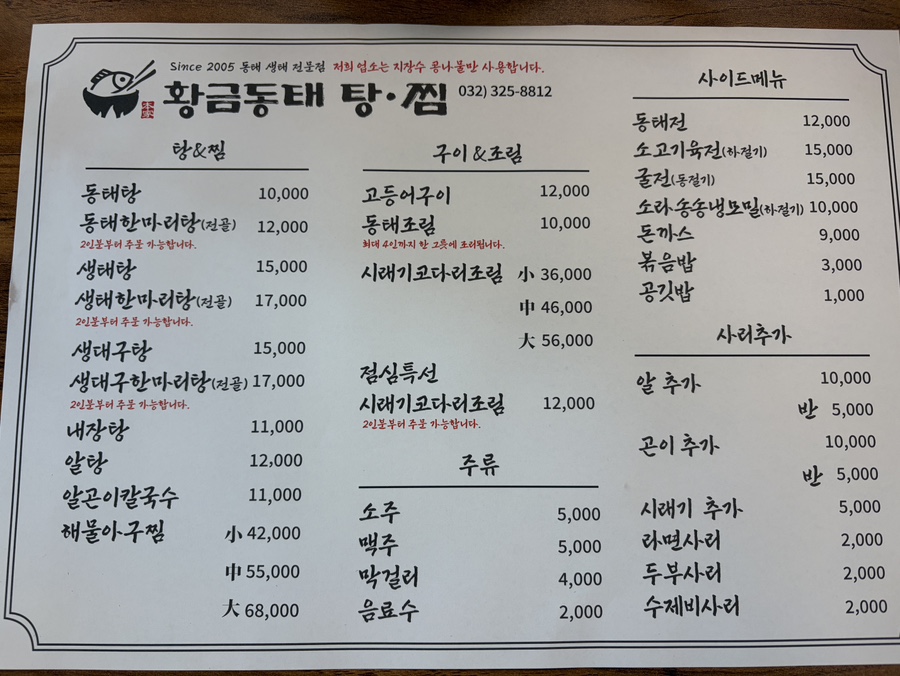 Since 2005 동태 생태 전문점 저희 업소는 지장수 콩나물만 사용합니다.
황금동태 탕·찜 032) 325-8812
탕&찜
동태탕 10,000
동태한마리탕(전골) 12,000
2인분부터 주문 가능합니다.
생태탕 15,000
생태한마리탕(전골) 17,000
2인분부터 주문 가능합니다.
생대구탕 15,000
생대구한마리탕(전골) 17,000
2인분부터 주문 가능합니다.
내장탕 11,000
알탕 12,000
알곤이칼국수 11,000
해물아구찜 小 42,000
中 55,000
大 68,000
구이&조림
고등어구이 12,000
동태조림 10,000
최대 4인까지 한 그릇에 조리됩니다.
시래기코다리조림 小 36,000
中 46,000
大 56,000
점심특선
시래기코다리조림 12,000
2인분부터 주문 가능합니다.
주류
소주 5,000
맥주 5,000
막걸리 4,000
음료수 2,000
사이드메뉴
동태전 12,000
소고기육전(하절기) 15,000
굴전(동절기) 15,000
소라송송냉모밀(하절기) 10,000
돈까스 9,000
볶음밥 3,000
공깃밥 1,000
사리추가
알 추가 10,000
반 5,000
곤이 추가 10,000
반 5,000
시래기 추가 5,000
라면사리 2,000
두부사리 2,000
수제비사리 2,000